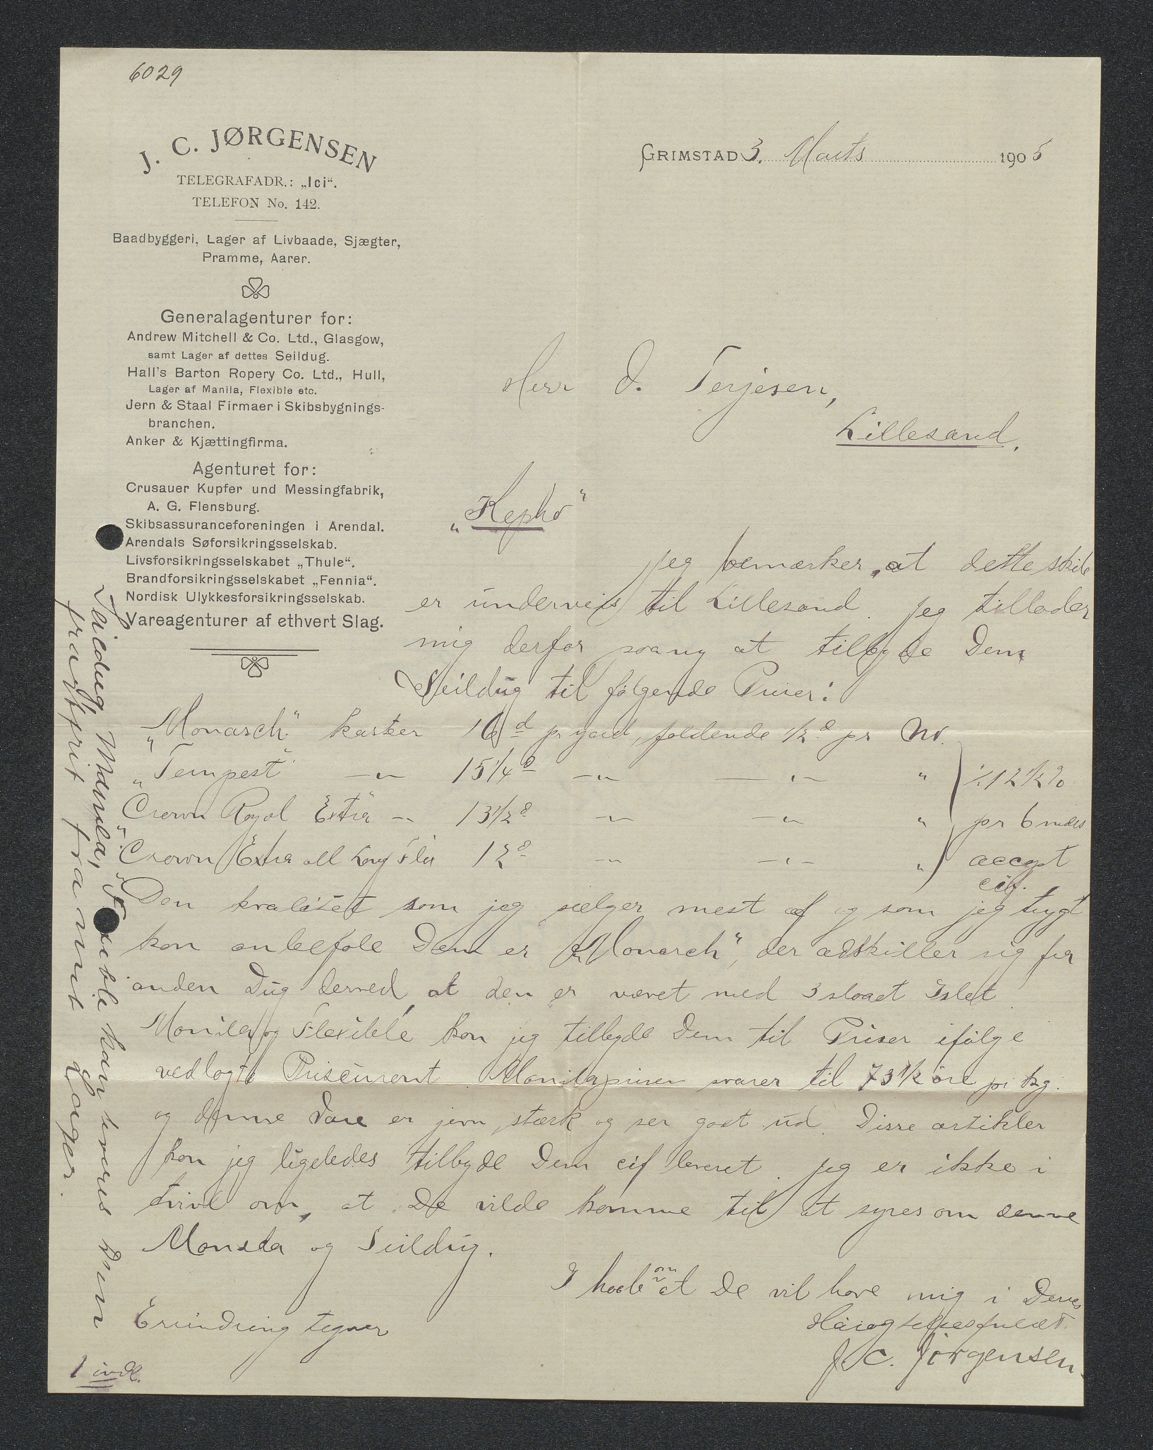 6029
J. C. JØRGENSEN
TELEGRAFADR.: „Ici“.
TELEFON No. 142.
Baadbyggeri, Lager af Livbaade, Sjægter,
Pramme, Aarer.
Generalagenturer for:
Andrew Mitchell & Co. Ltd., Glasgow,
samt Lager af dettes Seildug.
Hall's Barton Ropery Co. Ltd., Hull,
Lager af Manila, Flexible etc.
Jern & Staal Firmaer i Skibsbygnings-
branchen.
Anker & Kjættingfirma.
Agenturet for:
Crusauer Kupfer und Messingfabrik,
A. G. Flensburg.
Skibsassuranceforeningen i Arendal.
Arendals Søforsikringsselskab.
Livsforsikringsselskabet „Thule“.
Brandforsikringsselskabet „Fennia“.
Nordisk Ulykkesforsikringsselskab.
Vareagenturer af ethvert Slag.
GRIMSTAD 3. Marts 1905
Herr O. Terjesen,
Lillesand.
jeg bemærker, at dette skib
er underveis til Lillesand. jeg tillader
mig derfor paany at tilbyde Dem
Seildug til følgende Priser:
„Monarch“ karter 16 d pr yard, faldende 1/2 d pr No.
„Tempest“ —"— 15 1/4 d —"— —"— "
Crown Royal Extra —"— 13 1/2 d —"— —"— "
Crown Extra all Long Flax 12 d —"— —"— "
÷ 12 1/2 %
pr 6 mds
accept
cif.
Den kvalitet som jeg sælger mest af og som jeg trygt
kan anbefale Dem er „Monarch“, der adskiller sig fra
anden Dug derved, at den er vævet med 3 slaaet Islet.
Manila og Flexible kan jeg tilbyde Dem til Priser ifølge
vedlagte Priscurent. Manilaprisen svarer til 73 1/2 øre pr kg.
og denne Vare er jevn, stærk og ser godt ud. Disse artikler
kan jeg ligeledes tilbyde Dem cif leveret. jeg er ikke i
tvivl om, at De vilde komme til at synes om denne
Manila og Seildug.
I haab om at De vil have mig i Deres
Erindring tegner
Høiagtelsesfuldt
J. C. Jørgensen.
1 indl.
Seildug, Manila, Flexible kan leveres Dem
fragtfrit fra mit Lager.